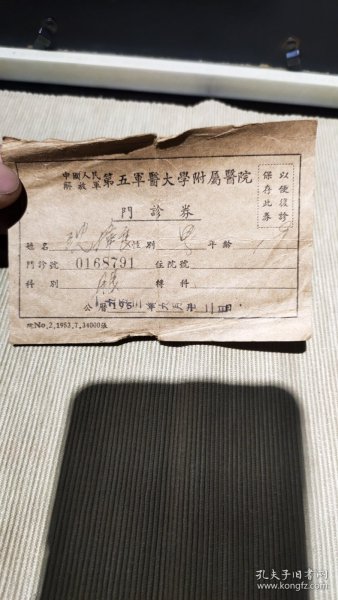 中國人民
解放軍
第五軍醫大學附屬醫院
以便復診
保存此券
門診券
姓名 性別 男 年齡
門診號 0168791 住院號
科別 轉科
公曆
院No.2,1953,7,34000張
孔夫子旧书网
www.kongfz.com